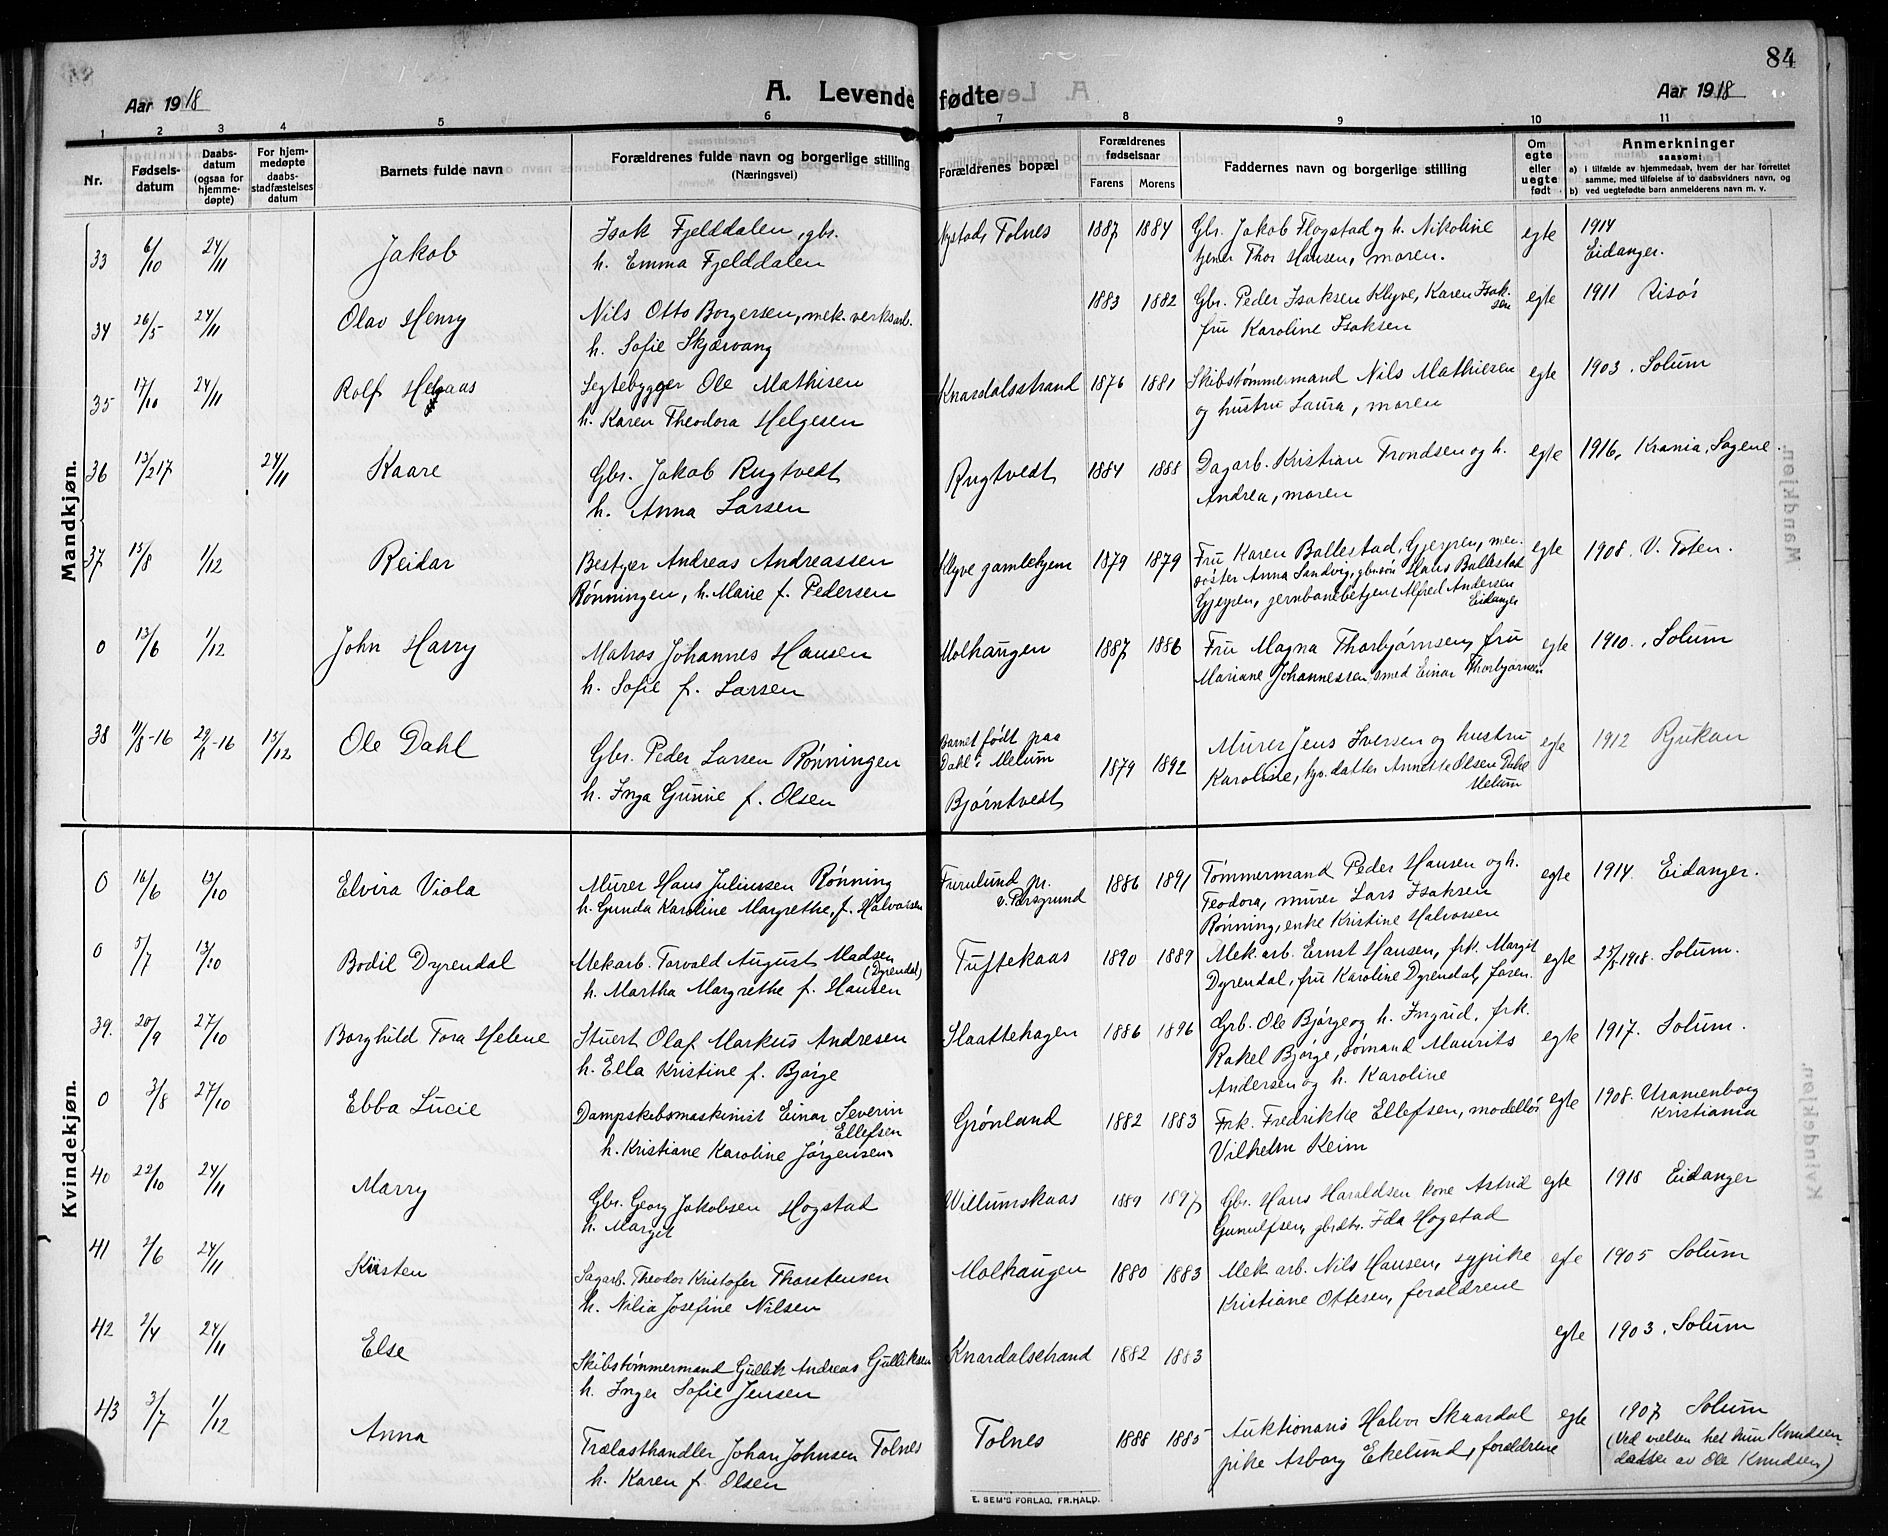 84
Aar 1918
A. Levende fødte
Aar 1918
1 2 3 4 5 6 7 8 9 10 11
Nr.
Fødsels-
datum
Daabs-
datum
(ogsaa for
hjemme-
døpte)
For hjem-
medøpte
daabs-
stadfæstelses
datum
Barnets fulde navn
Forældrenes fulde navn og borgerlige stilling
(Næringsvei)
Forældrenes bopæl
Forældrenes
fødselsaar
Farens Morens
Faddernes navn og borgerlige stilling
Om
egte
eller
uegte
født
Anmerkninger
saasom:
a) i tilfælde av hjemmedaab, hvem der har forrettet
samme, med tilføielse af to daabsvidners navn, og
b) ved uegtefødte barn anmelderens navn m. v.
Mandkjøn.
33 6/10 24/11 Jakob
Isak Fjelddalen, gbr.
h. Emma Fjelddalen
Nystad, Tolnes 1887 1884
Gbr. Jakob Flogstad og h. Nikoline
tjener Thor Hansen, moren.
egte 1914
Eidanger.
34 26/5 24/11 Olav Henry
Nils Otto Borgersen, mek. verksarb.
h. Sofie Skjærvang
1883 1882
Gbr. Peder Isaksen Klyve, Karen Isak-
sen
fru Karoline Isaksen
egte 1911 Risør
35 17/10 24/11 Rolf
Ole Mathisen
h. Karen Theodora Helgesen
Knardalsstrand 1876 1881
Skibstømmermand Nils Mathiesen
og hustru Laura, moren
egte 1903. Solum
36 13/2 17 24/11 Kaare
Gbr. Jakob Rugtvedt
h. Anna Larsen
Rugtvedt 1884 1888
Dagarb. Kristian Trondsen og h.
Andrea, moren
egte 1916, Krania, Sagene.
37 15/8 1/12 Reidar
Bestyer Andreas Andreassen
Rønningen, h. Marie f. Pedersen
Klyve gamlehjem 1879 1879
Fru Karen Ballestad, Gjerpen, mei-
Anna Sandvig, gbrsøn Hans Ballestad
Gjerpen, jernbanebetjent Alfred Andersen
Eidanger
egte 1908. V. Toten.
0 13/6 1/12 John Harry
Matros Johannes Hansen
h. Sofie f. Larsen
Molhaugen 1887 1886
Fru Magna Thorbjørnsen, fru
Mariane Johannessen, smed Einar Thorbjørnsen
egte 1910., Solum
38 11/8-16 29/8-16 15/12 Ole Dahl
Gbr. Peder Larsen Rønningen
h. Inga Gunie f. Olsen
Barnet født paa
Dahl i Melum
Bjørntvedt 1879 1892
Murer Jens Iversen og hustru
Karoline, gbr. datter Annette Olsen Dahl
Melum
egte 1912 Rjukan
Kvindekjøn.
0 16/6 13/10 Elvira Viola
Murer Hans Juliussen Rønning
h. Gunda Karoline Margrethe, f. Halvorsen
Frernlund pr.
v. Porsgrund 1886 1891
Tømmermand Peder Hansen og h.
Teodora, murer Lars Isaksen
Rønning, enke Kristine Halvorsen
egte 1914. Eidanger.
0 5/7 13/10 Bodil Dyrendal
Mekarb. Torvald August Madsen
(Dyrendal)
h. Martha Margrethe f. Hansen
Tuftekaas 1890 1889
Mek. arb. Ernst Hansen, frk. Margit
Dyrendal, fru Karoline Dyrendal, faren.
egte 25/5 1918. Solum.
39. 20/9 27/10 Borghild Tora Helene
Stuert Olaf Markus Andresen
h. Ella Kristine f. Bjørge
Slaattehagen 1886 1896
Grb. Ole Bjørge og h. Ingrid, frk.
Rakel Bjørge, sømand Maurits
Andersen og h. Karoline
egte 1917. Solum.
0 3/8 27/10 Ebba Lucie
Dampskibsmaskinist Einar Severin
Ellefsen
h. Kristiane Karoline Jørgensen
Grønland 1882 1883
Frk. Fredrikke Ellefsen, modellør
Vilhelm Keim
egte 1908. Uranienborg
Kristiania
40 22/10 24/11 Marry
Gbr. Georg Jakobsen Hogstad
h. Margit
Willumskaas 1889 1897
Gbr. Hans Haraldsen kone Astrid
Gunulfsen, gbrdtr. Ida Hogstad
egte 1918 Eidanger
41 2/6 24/11 Kirsten
Sagarb. Theodor Kristofer Thorstensen
h. Nilia Josefine Nilsen
Molhaugen 1880 1883
Mek. arb. Nils Hansen, sypike
Kristiane Ottesen, forældrene
egte 1905 Solum
42 2/4 24/11 Else
Skibstømmermand Gullik Andreas Gulliksen
h. Inger Sofie Jensen
Knardalstrand 1882 1883
egte 1903. Solum
43 3/7 1/12 Anna
Trælasthandler Johan Johnsen Tolnes
h. Karen f. Olsen
Tolnes 1888 1885
Auktionaris Halvor Skaardal
pike Asborg Ekelund, forældrene
egte 1907 Solum
(Ved vielsen het hun Knudsen
datter av Ole Knudsen)
E. SEM'S FORLAG, FR.HALD.